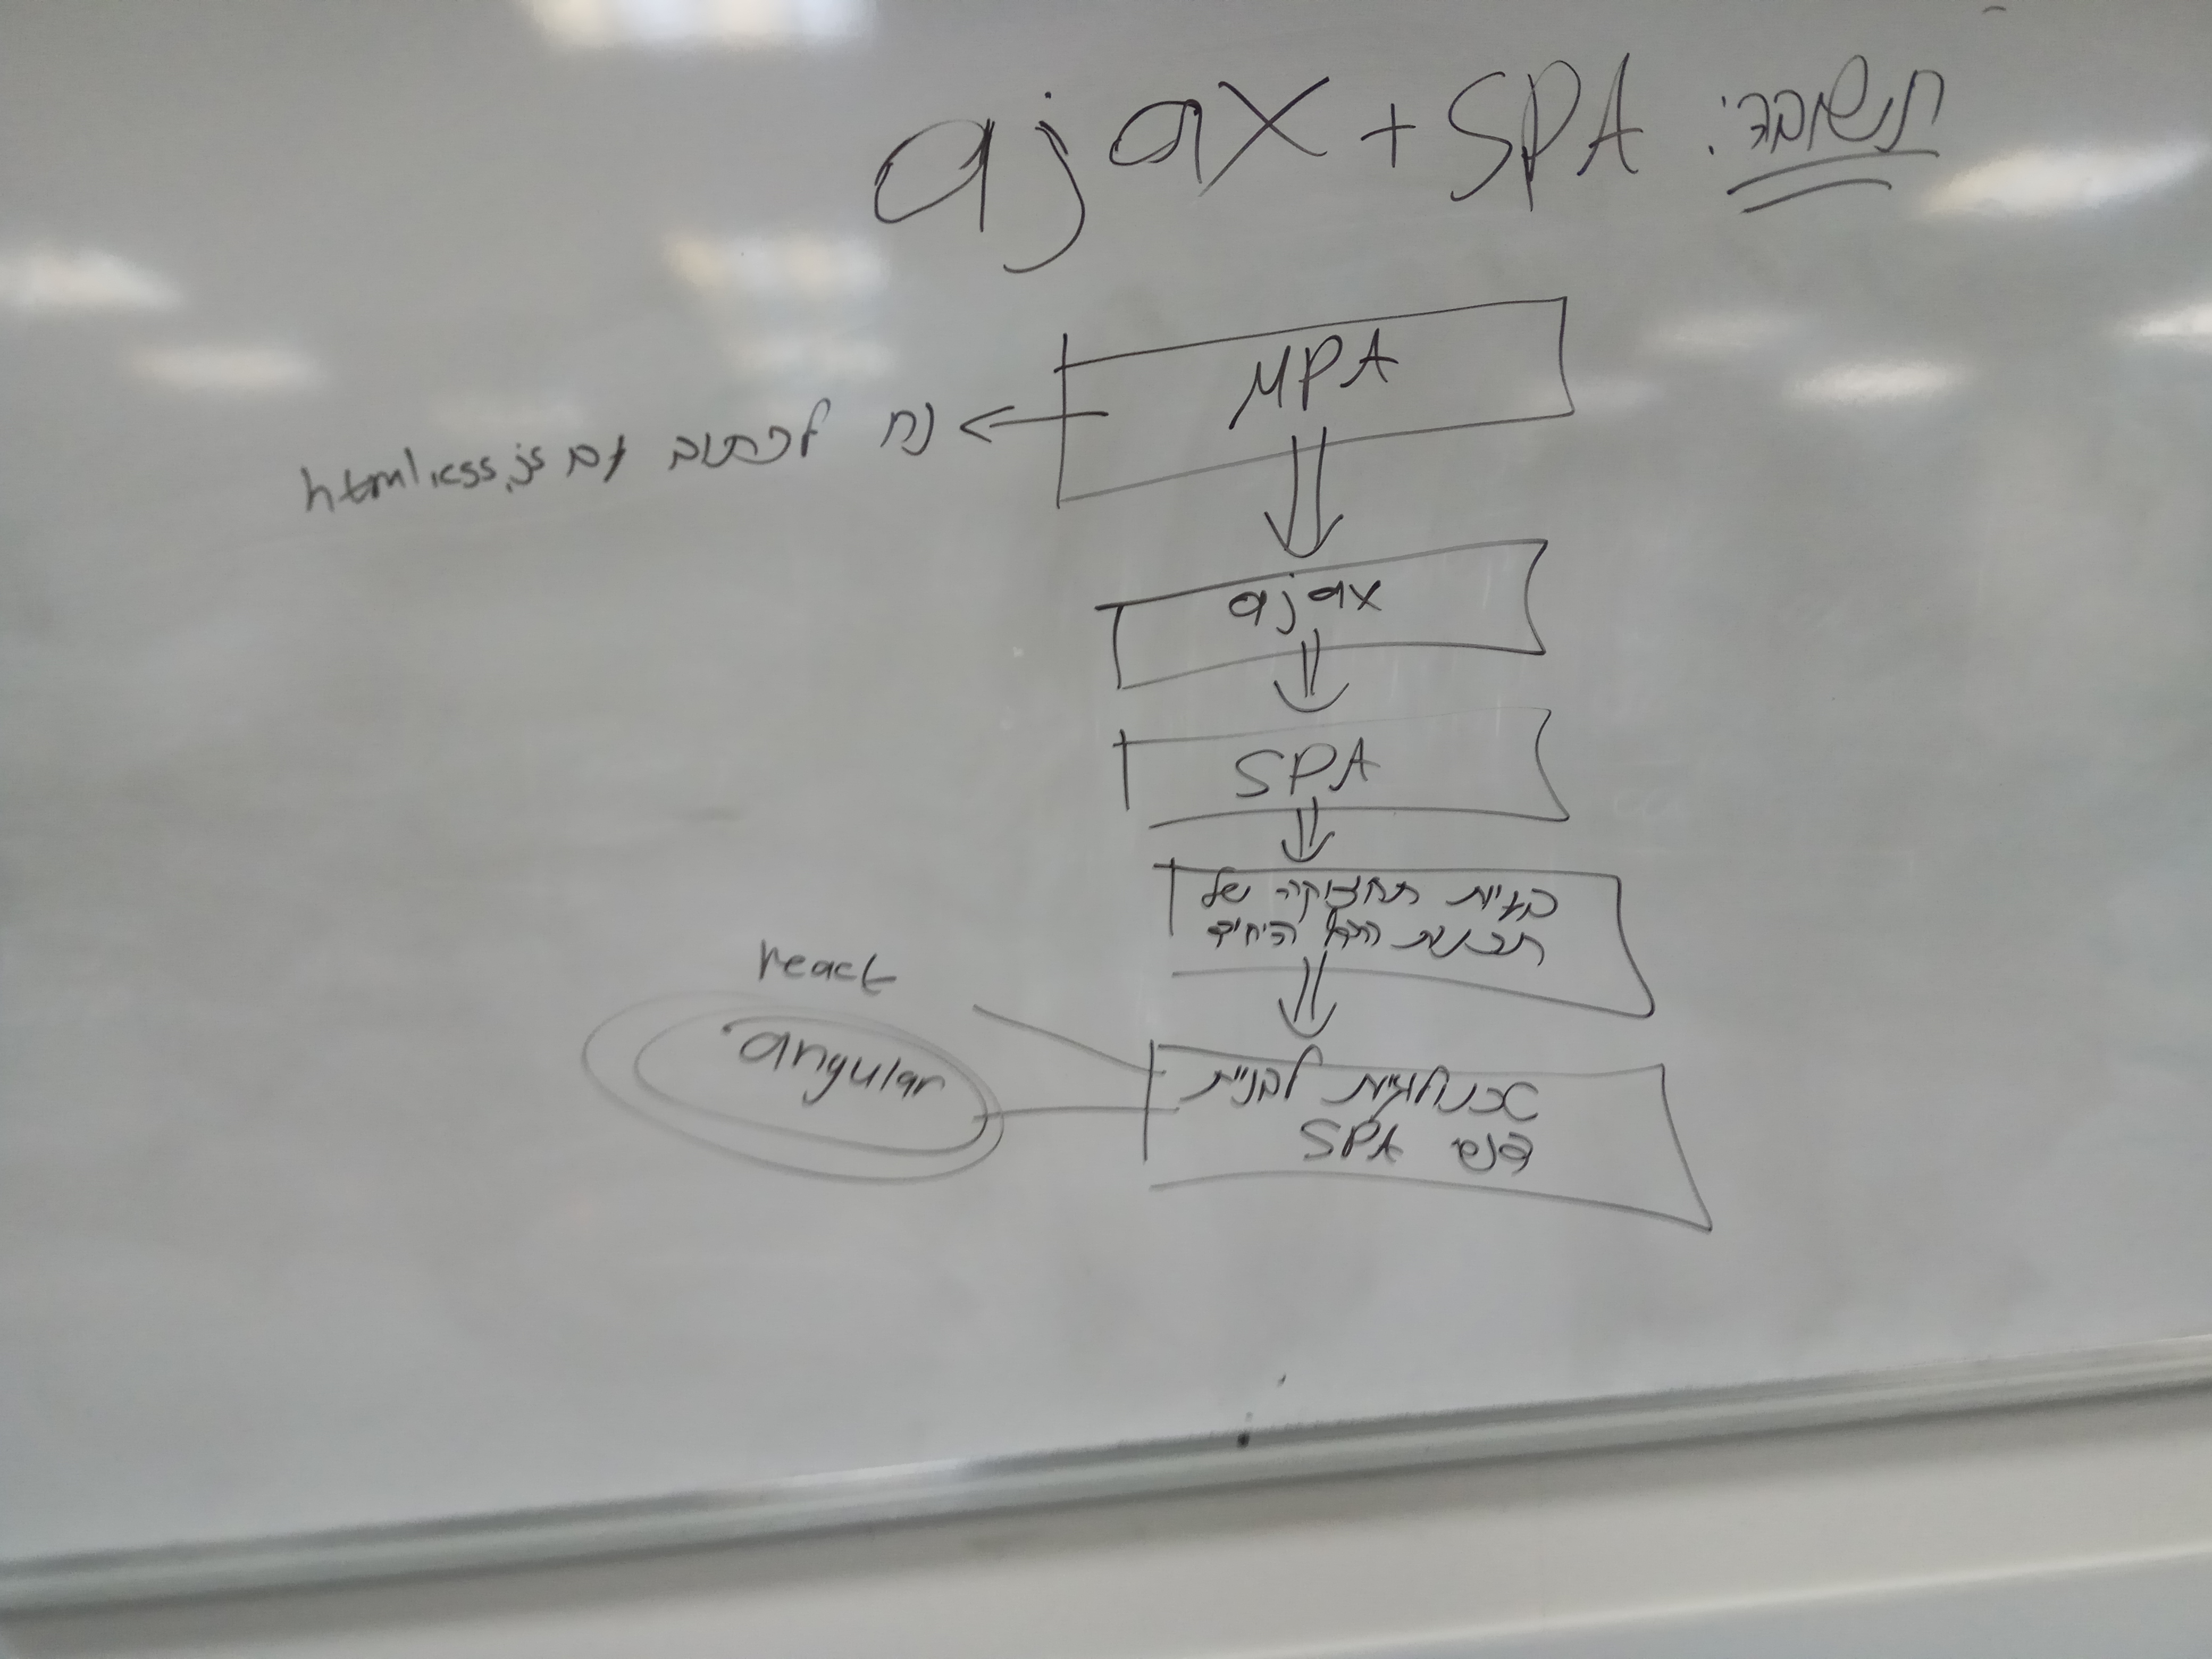 תשובה: ajax + SPA
MPA
נח לכתוב עם html, css, js
ajax
SPA
בעיות תחזוקה של
תבנית הדף היחיד
טכנולוגיות לבניית
דפי SPA
react
angular